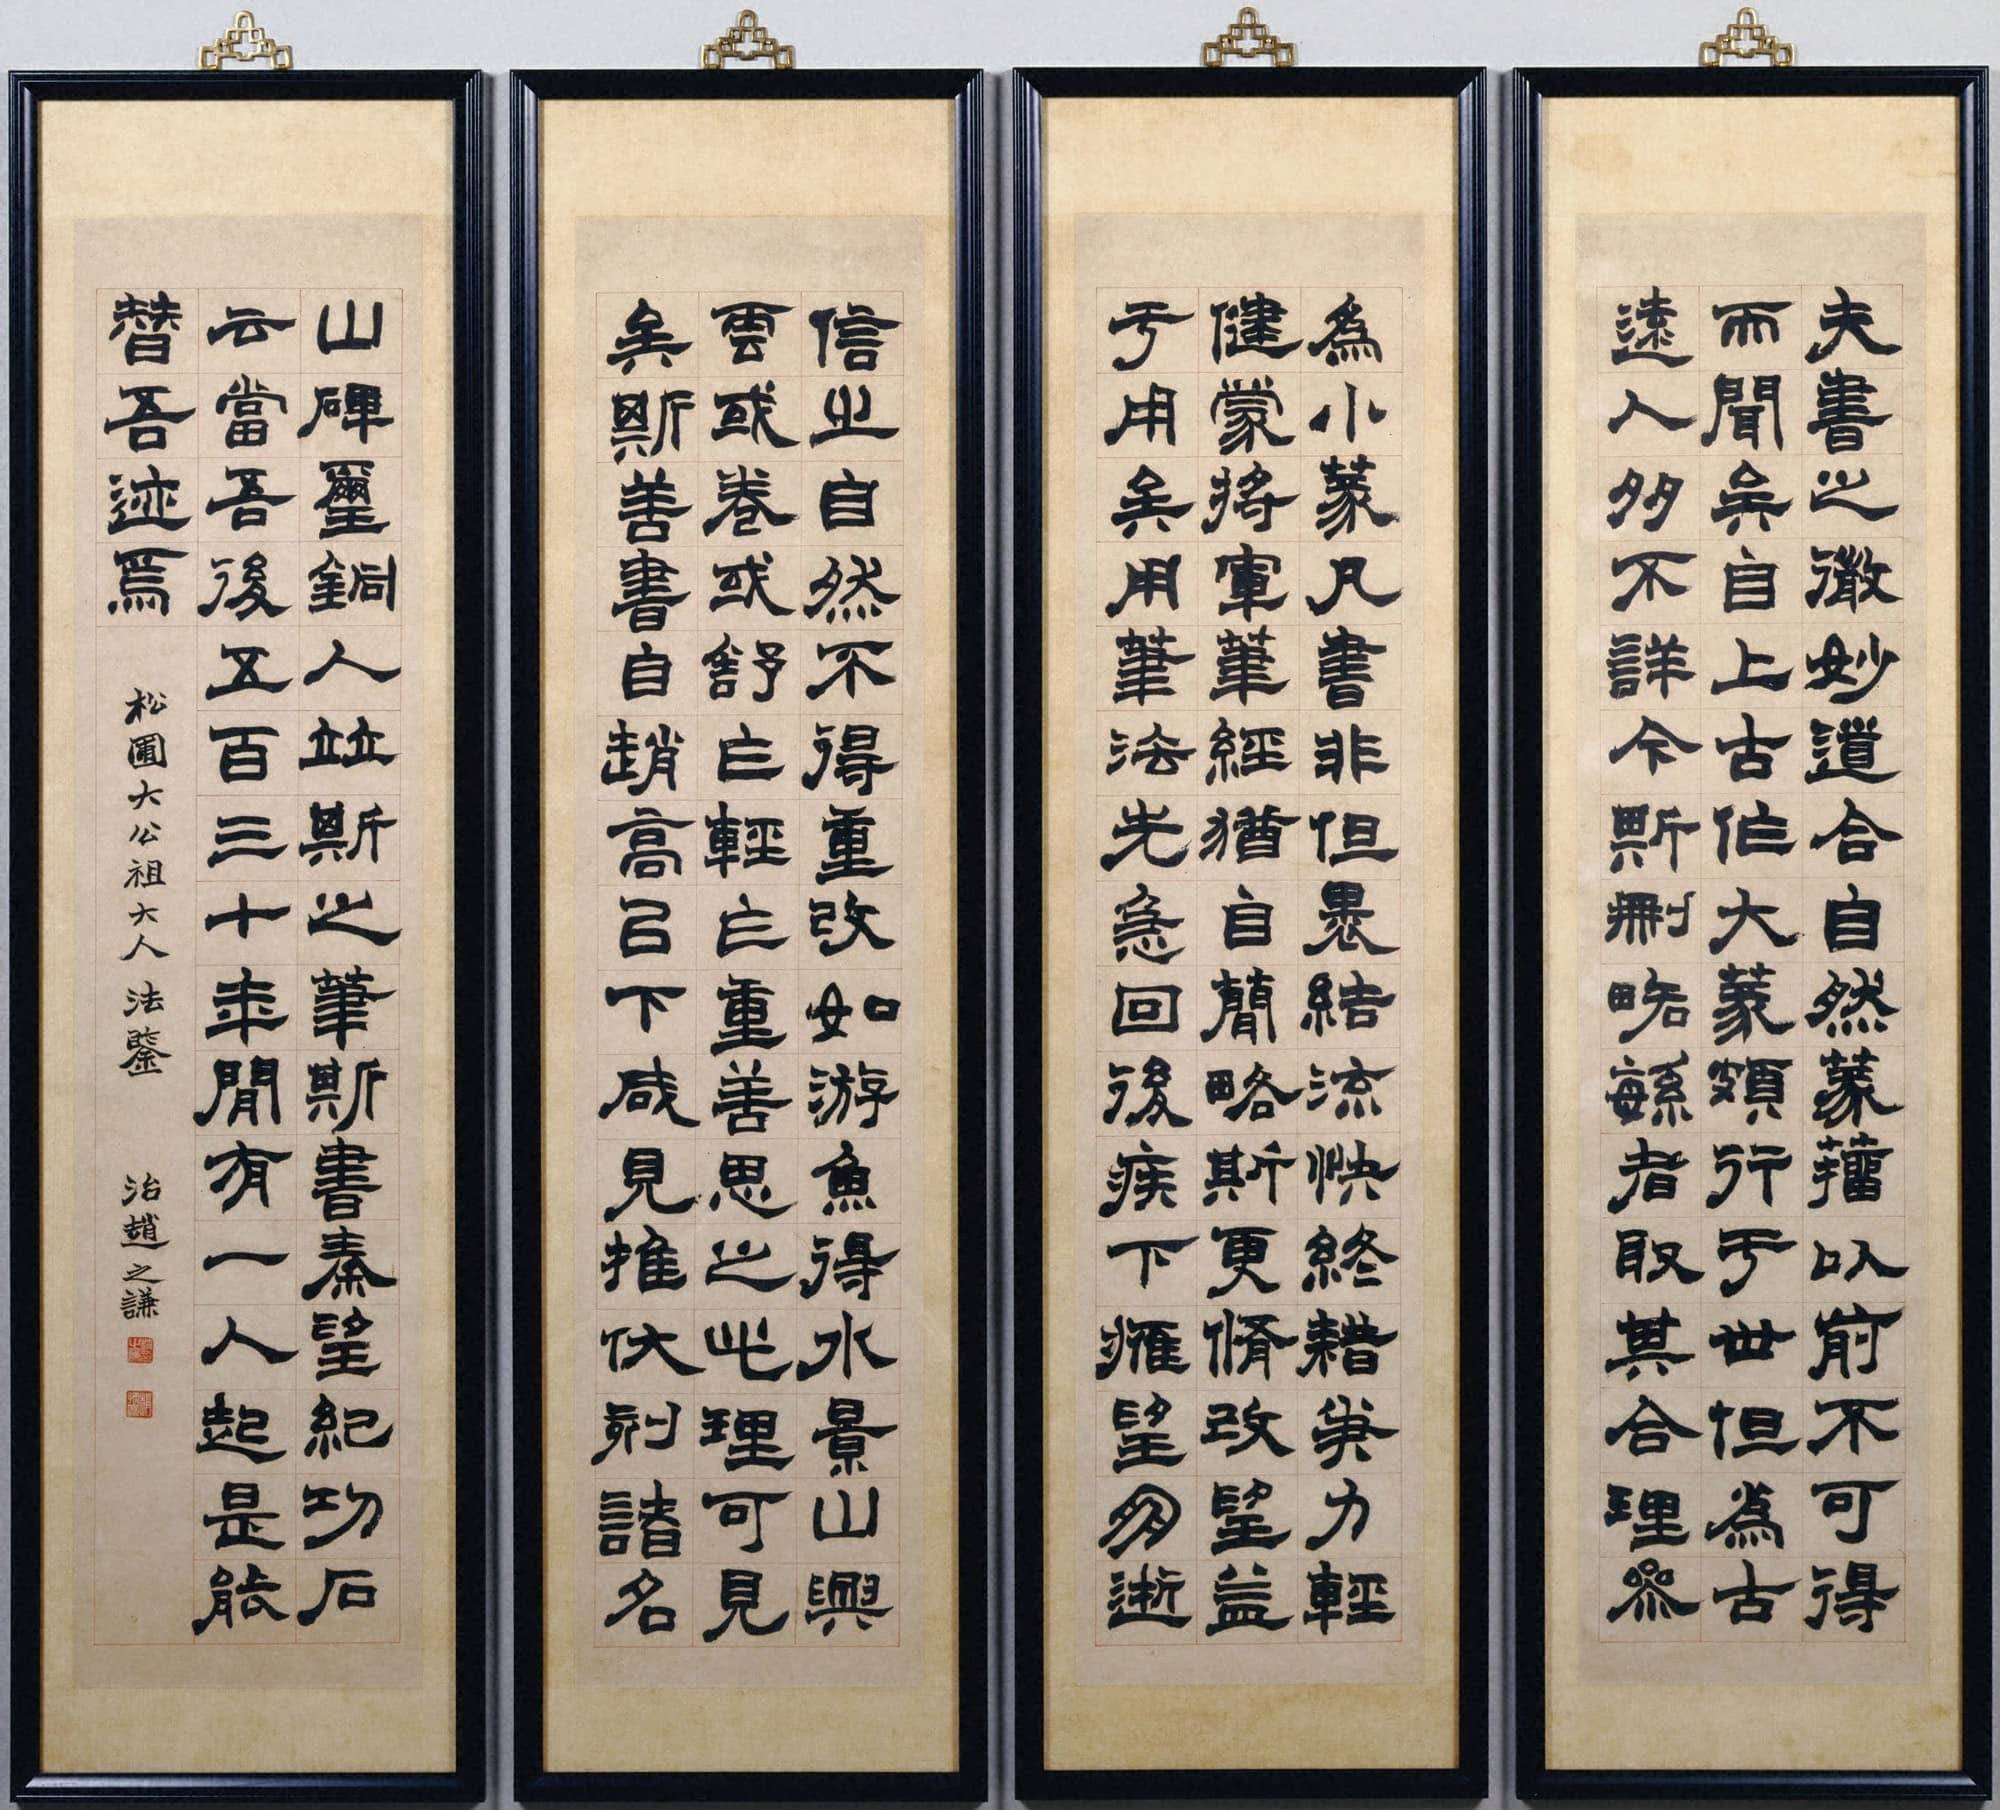 夫書之微妙道合自然篆籀以前不可得
而聞矣自上古作大篆頗行于世但為古
遠人多不詳今斯刪略繇者取其合理參
為小篆凡書非但裹結流快終藉筆力輕
健蒙將軍筆經猶自簡略斯更脩改望益
于用矣用筆法先急回後疾下癨望勿逝
信之自然不得重改如游魚得水景山興
雲或卷或舒乍輕乍重善思之此理可見
矣斯善書自趙高以下咸見推伏刻諸名
山碑璽銅人竝斯之筆斯書秦望紀功石
云當吾後五百三十年閒有一人起是能
替吾迹焉
松圃大公祖大人 法鑒 治趙之謙